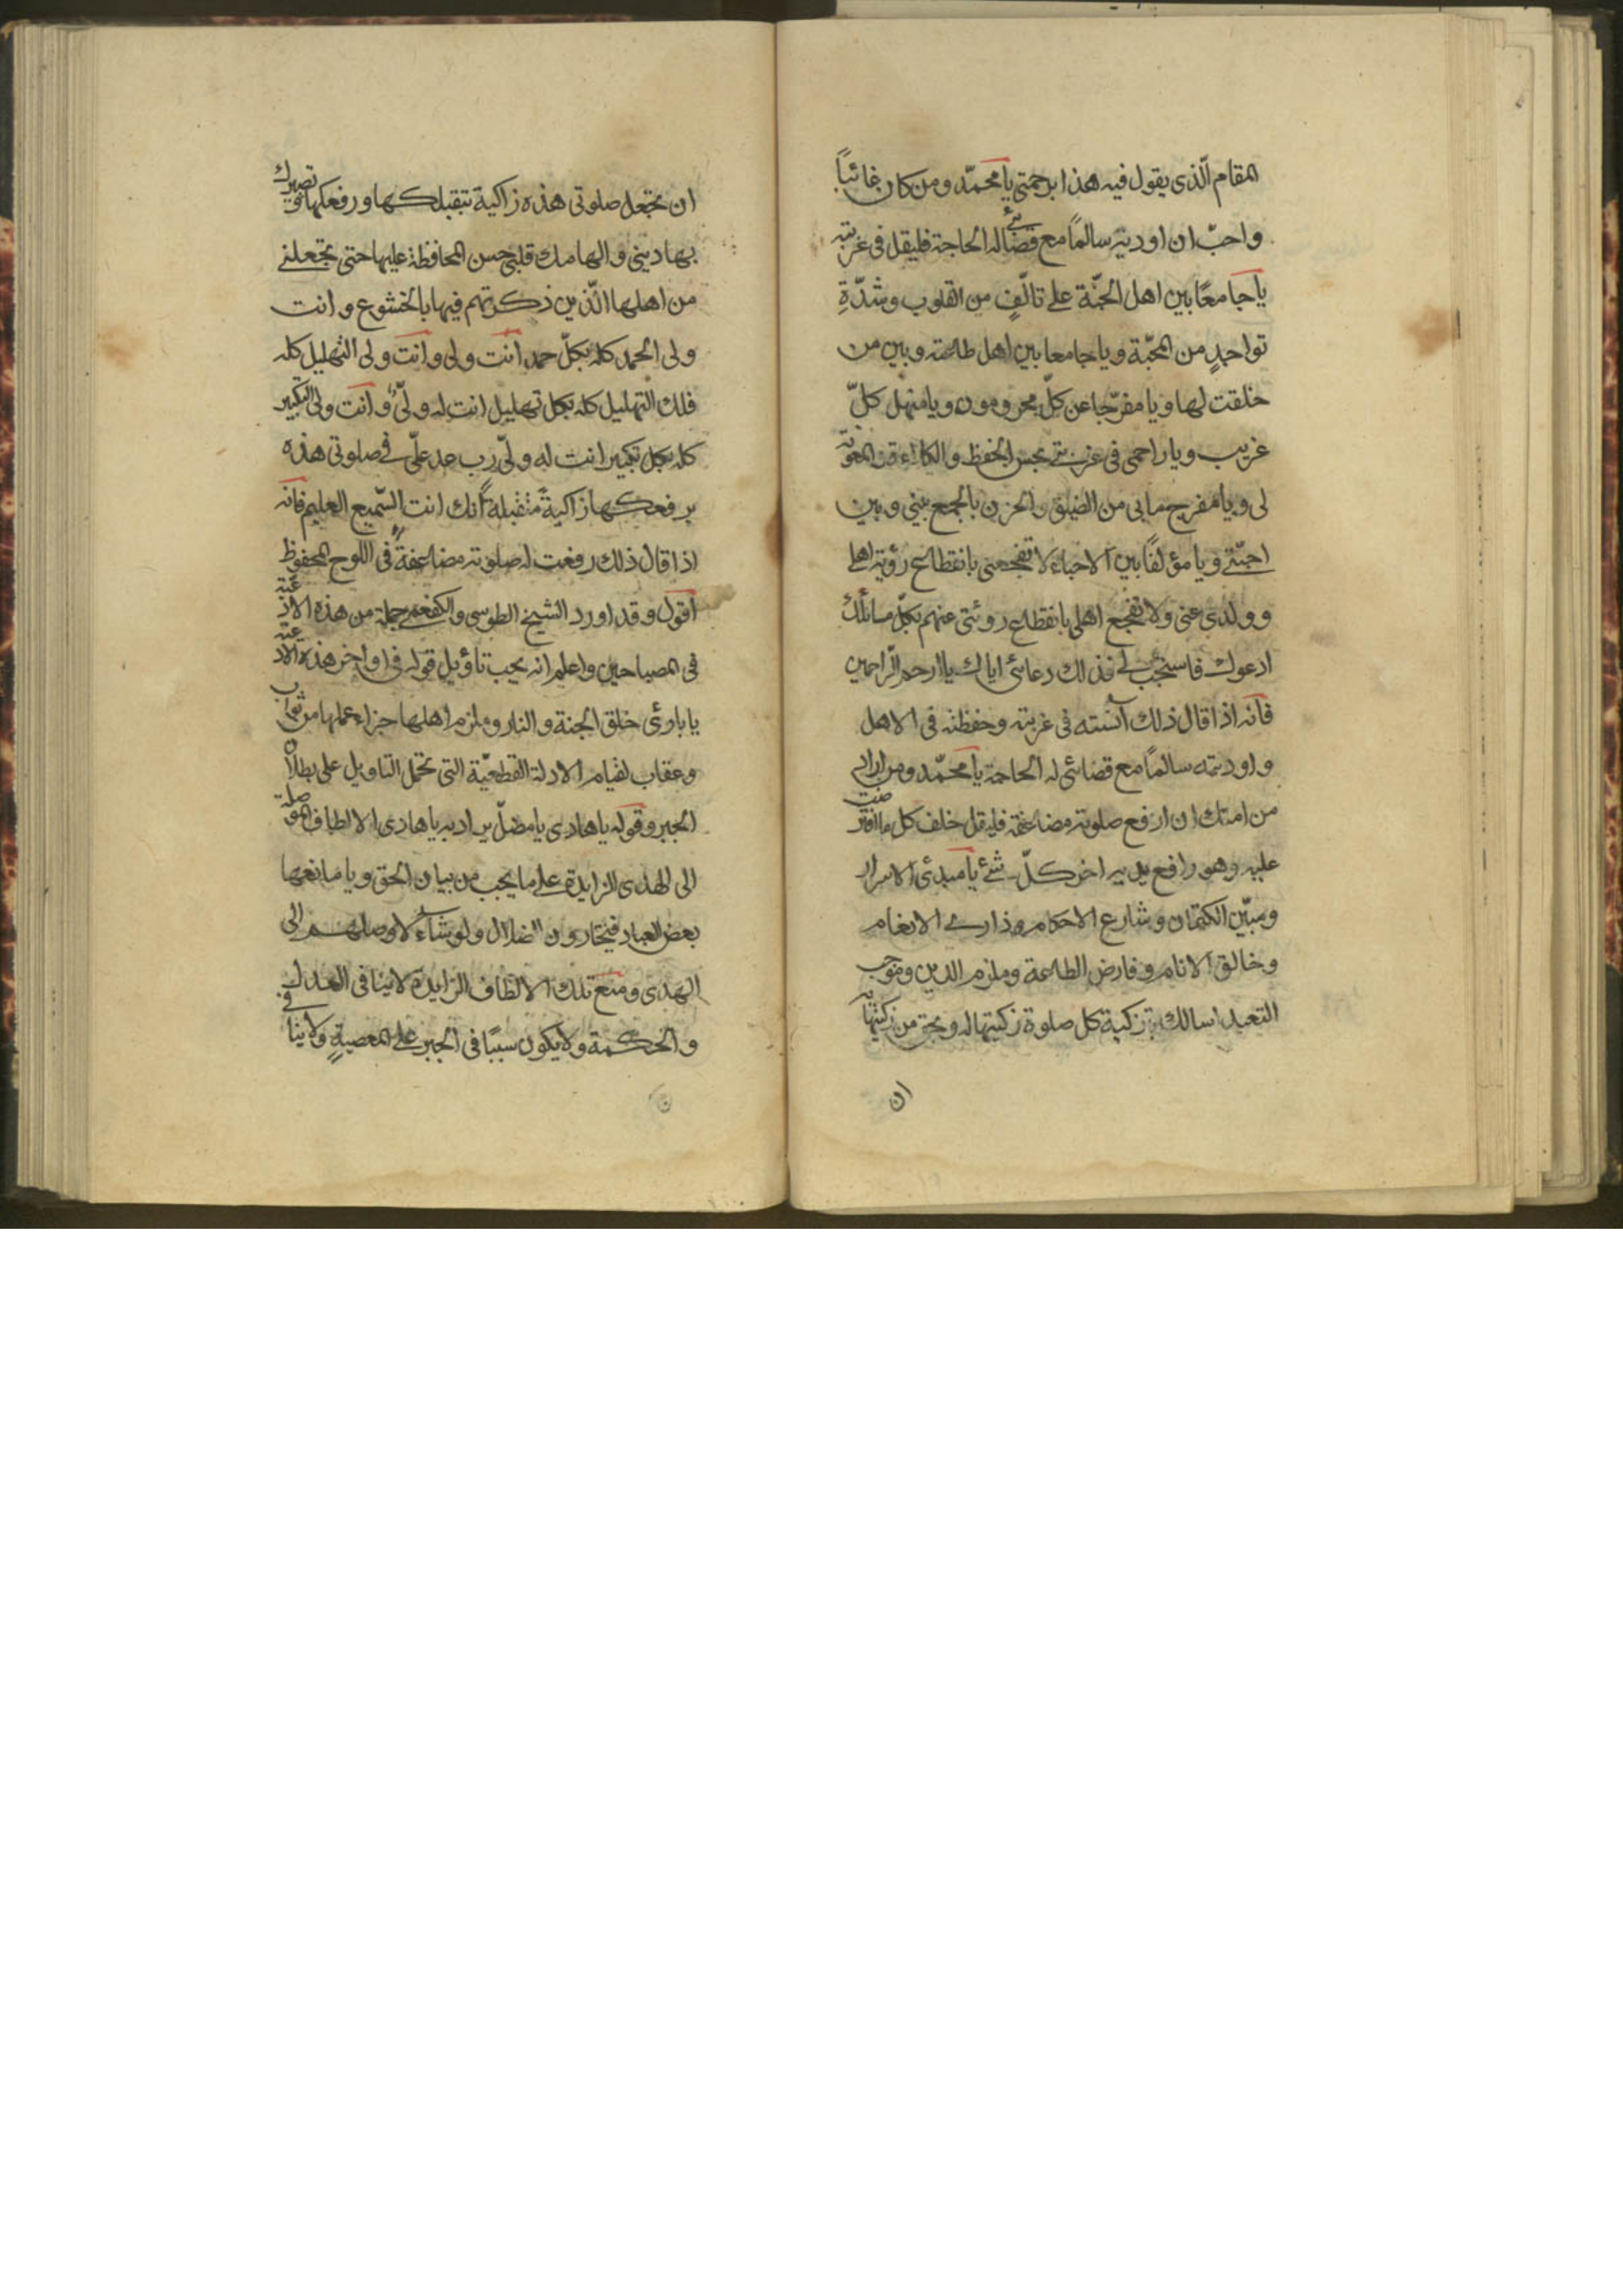 المقام الّذى يقول فيه هذا برحمتى يا محمّد ومن كان غائباً
واحبّ ان اوديه سالماً مع قضائى له الحاجة فليقل فى غربته
يا جامعاً بين اهل الجنّة على تالّفٍ من القلوب وشدّةِ
تواجدٍ من المحبّة ويا جامعا بين اهل طاعته وبين من
خلقت لها ويا مفرّجا عن كلّ محزون ويا منهل كلّ
غريب ويا راحمى فى غربتى بحسن الحفظ والكلاءة والمعونة
لى ويا مفرج ما بى من الضيق والحزن بالجمع بينى وبين
احبّتى ويا مؤلفاً بين الاحباء لا تفجعنى بانقطاع رؤية اهلى
وولدى عنى ولا تفجع اهلى بانقطاع روئتى عنهم بكلّ مسائلك
ادعوك فاستجب لى فذلك دعائى اياك يا ارحم الرّاحمين
فانّه اذا قال ذلك آنسته فى غربته وحفظته فى الاهل
واوديته سالماً مع قضائى له الحاجة يا محمّد ومن اراد
من امتك ان ارفع صلوته مضاعفة فليقل خلف كل ما افترضت
عليه وهو رافع يديه اخر كلّ شئ يا مبدئ الاسرار
ومبيّن الكتمان وشارع الاحكام وذارئ الانعام
وخالق الانام وفارض الطاعة وملزم الدين وموجب
التعبد اسالك بتزكية كل صلوة زكيتها له وبحق من زكيتها به
ان
ان تجعل صلوتى هذه زاكية بتقبلكها ورفعكها وتصييرك
بها دينى والهامك قلبى حسن المحافظة عليها حتى تجعلنى
من اهلها الّذين ذكرتهم فيها بالخشوع وانت
ولى الحمد كله بكلّ حمد انت ولى وانت ولى التهليل كله
فلك التهليل كله بكل تهليل انت له ولىّ وانت ولى التكبير
كله بكل تكبير انت له ولىّ رب عد علىّ فى صلوتى هذه
برفعكها زاكيةً متقبلةً انك انت السّميع العليم فانه
اذا قال ذلك رفعت له صلوته مضاعفةً فى اللوح المحفوظ
اقول وقد اورد الشيخ الطوسى والكفعمى جملة من هذه الادعية
فى المصباحين واعلم انه يجب تاؤيل قوله فى اواخر هذه الادعية
يا بارئ خلق الجنة والنار وملزم اهلها جزاء عملها من ثواب
وعقاب لقيام الادلة القطعيّة التى تحمل التاويل على بطلان
الجبر وقوله يا هادى يا مضلّ يراد به يا هادى الالطاف الموصلة
الى الهدى الزايدة على ما يجب من بيان الحق ويا مانعها
بعض العباد فيختارون الضلال ولو شاء لاوصلهم الى
الهدى ومنع تلك الالطاف الزايدة لا ينافى العدل
والحكمة ولا يكون سببًا فى الجبر على المعصيةِ ولا ينافى